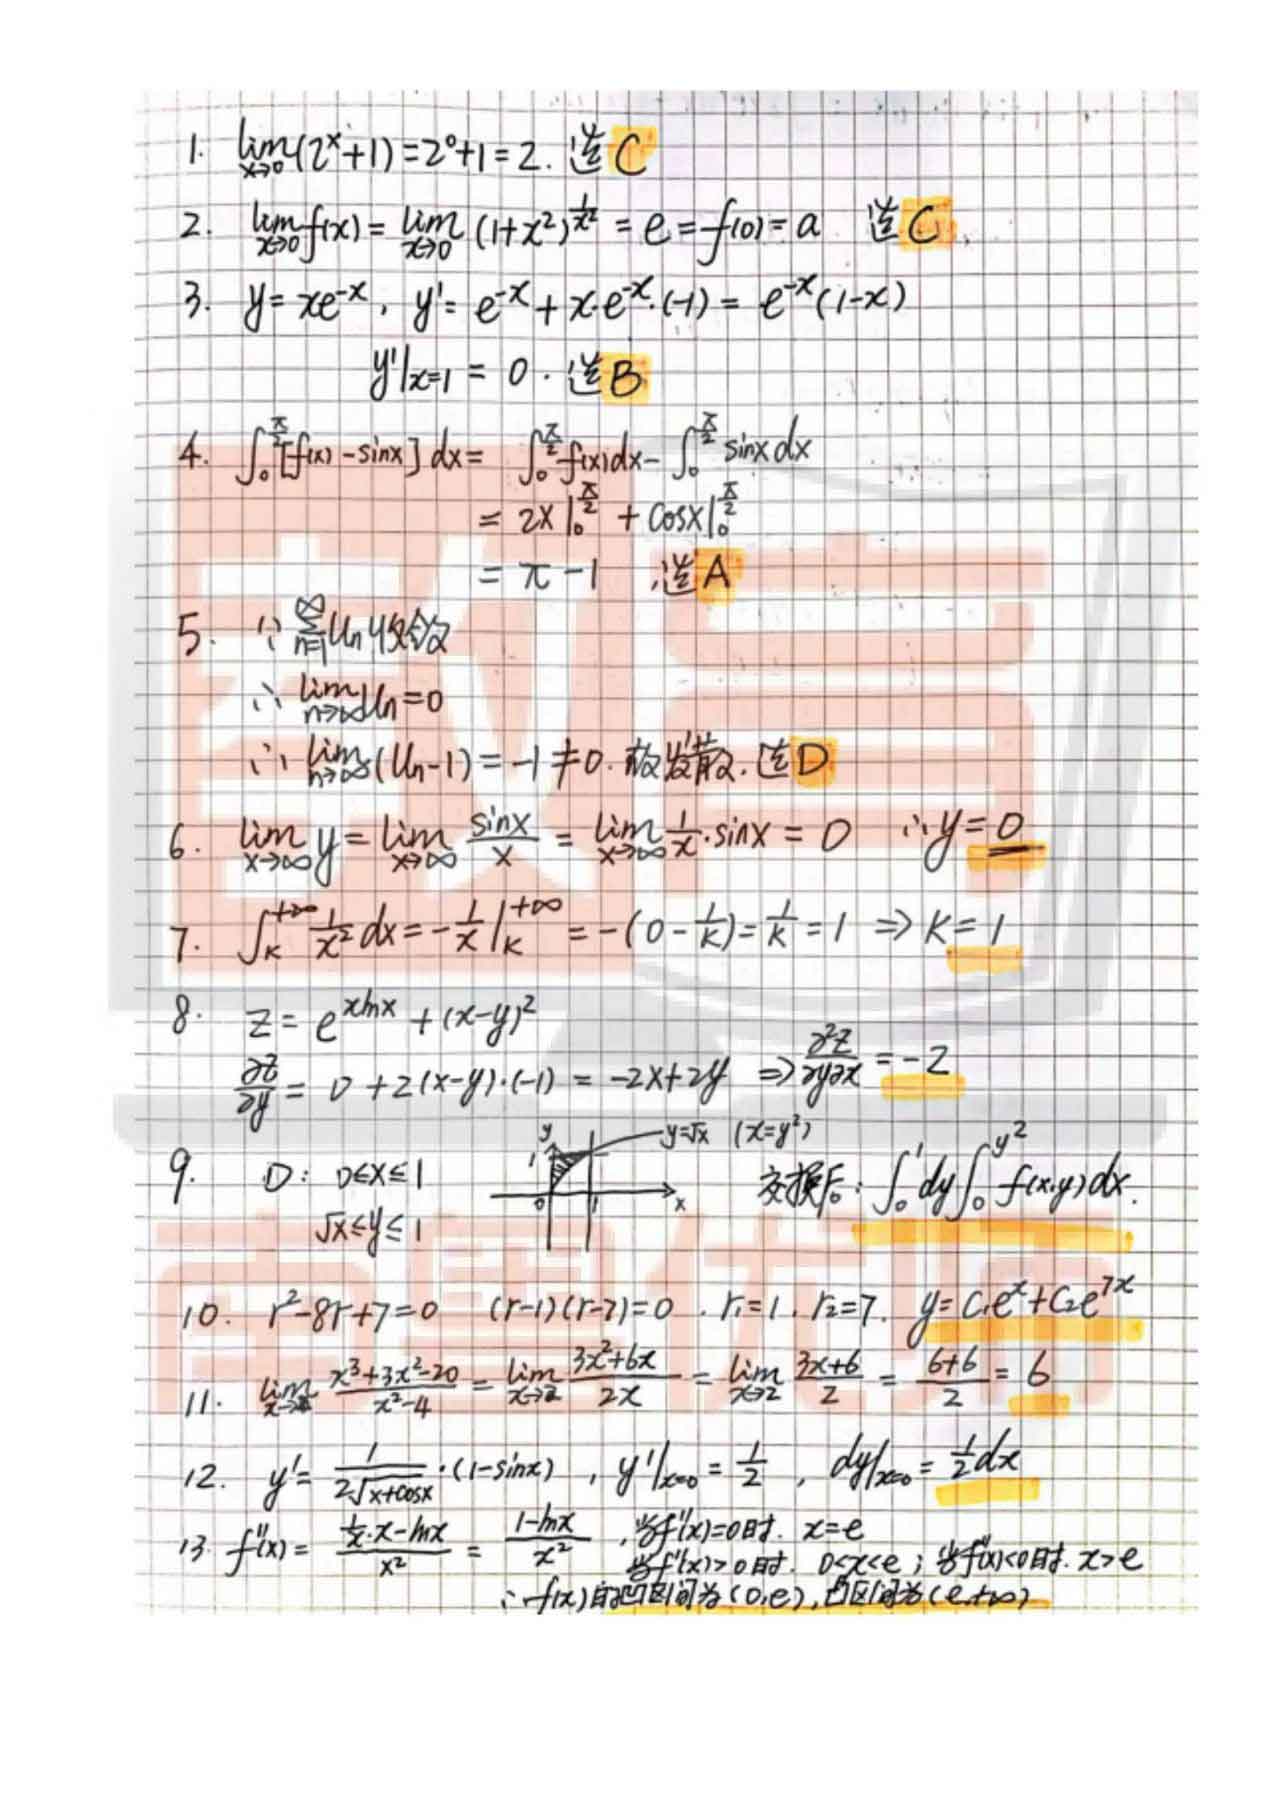 1. lim_{x→0}(2^x+1)=2^0+1=2. 选C
2. lim_{x→0}f(x)=lim_{x→0}(1+x^2)^{1/x^2}=e=f(0)=a 选C.
3. y=xe^{-x}, y'=e^{-x}+x·e^{-x}·(-1)=e^{-x}(1-x)
y'|_{x=1}=0. 选B
4. ∫_0^{π/2}[f(x)-sinx]dx=∫_0^{π/2}f(x)dx-∫_0^{π/2}sinxdx
=2x|_0^{π/2}+cosx|_0^{π/2}
=π-1 选A
5. ∵∑_{n=1}^∞ Un收敛
∴lim_{n→∞}Un=0
∴lim_{n→∞}(Un-1)=-1≠0. 故发散. 选D
6. lim_{x→∞}y=lim_{x→∞}sinx/x=lim_{x→∞}1/x·sinx=0 ∴y=0
7. ∫_K^{+∞}1/x^2dx=-1/x|_K^{+∞}=-(0-1/K)=1/K=1⇒K=1
8. z=e^{xlnx}+(x-y)^2
∂z/∂y=0+2(x-y)·(-1)=-2x+2y ⇒∂²z/∂y∂x=-2
y y=√x (x=y²)
9. D: 0≤x≤1 1 0 1 x 交换后: ∫_0^1dy∫_0^{y²}f(x,y)dx.
√x≤y≤1
10. r²-8r+7=0 (r-1)(r-7)=0. r₁=1. r₂=7. y=C₁e^x+C₂e^{7x}
11. lim_{x→2}(x³+3x²-20)/(x²-4)=lim_{x→2}(3x²+6x)/2x=lim_{x→2}(3x+6)/2=(6+6)/2=6
12. y'=1/(2√(x+cosx))·(1-sinx), y'|_{x=0}=1/2, dy|_{x=0}=1/2dx
13. f''(x)=(1/x·x-lnx)/x²=(1-lnx)/x², 当f''(x)=0时. x=e
当f''(x)>0时. 0<x<e; 当f''(x)<0时. x>e
∴f(x)的凹区间为(0,e), 凸区间为(e,+∞)
南粤优师